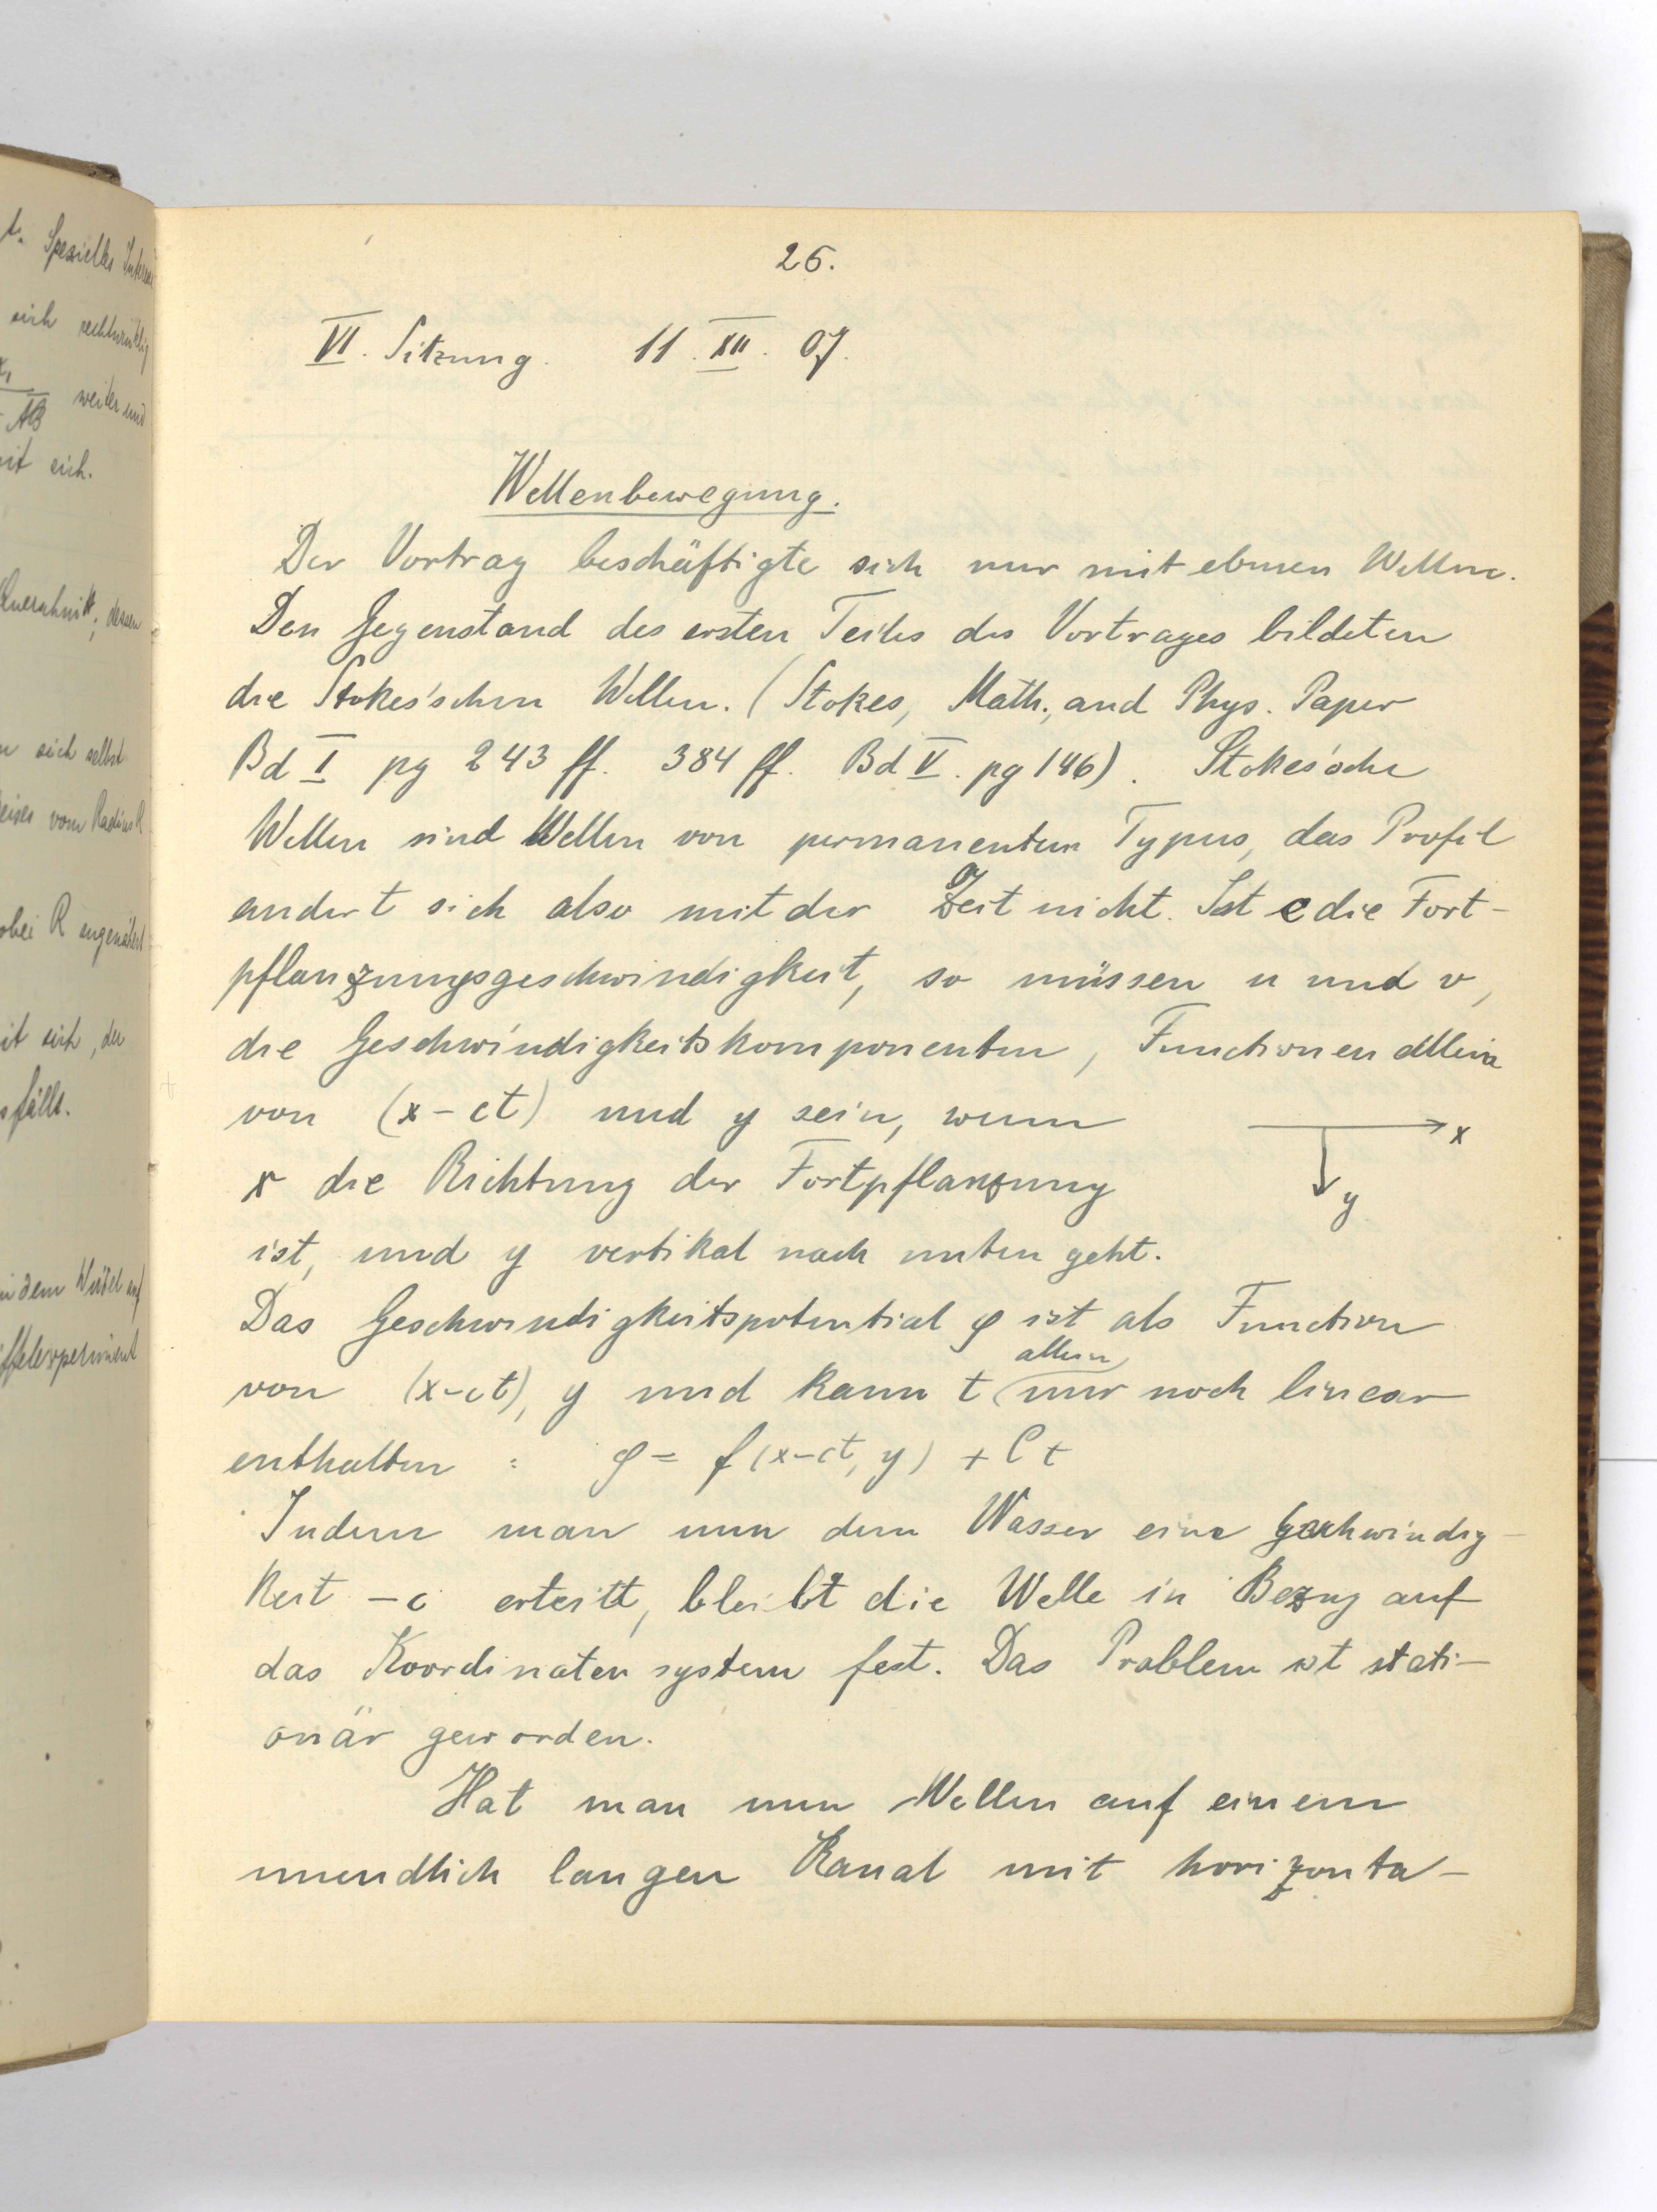 26.
VI. Sitzung. 11. XII. 07.
Wellenbewegung.
Der Vortrag beschäftigte sich nur mit ebenen Wellen.
Den Gegenstand des ersten Teiles des Vortrages bildeten
die Stokes'schen Wellen. (Stokes, Math., and Phys. Paper
Bd I pg 243 ff. 384 ff. Bd V. pg 146). Stokes'sche
Wellen sind Wellen von permanentem Typus, das Profil
andert sich also mit der Zeit nicht. Ist c die Fort-
pflanzungsgeschwindigkeit, so müssen u und v,
die Geschwindigkeitskomponenten, Functionen allein
von (x-ct) und y sein, wenn
x
y
x die Richtung der Fortpflanzung
ist, und y vertikal nach unten geht.
Das Geschwindigkeitspotential φ ist als Function
von (x-ct), y und kann t allein nur noch linear
enthalten : φ = f(x-ct, y) + Ct
Indem man nun dem Wasser eine Geschwindig-
keit -c erteilt, bleibt die Welle in Bezug auf
das Koordinatensystem fest. Das Problem ist stati-
onär geworden.
Hat man nun Wellen auf einem
unendlich langen Kanal mit horizonta-
t. Spezielles
sich rechtwinklig
x1
AB weiter und
mit sich.
Querschnitt, dessen
sich selbst
Kreises vom Radius R
wobei R angenähert
mit sich, der
fälle.
in dem Wirbel auf